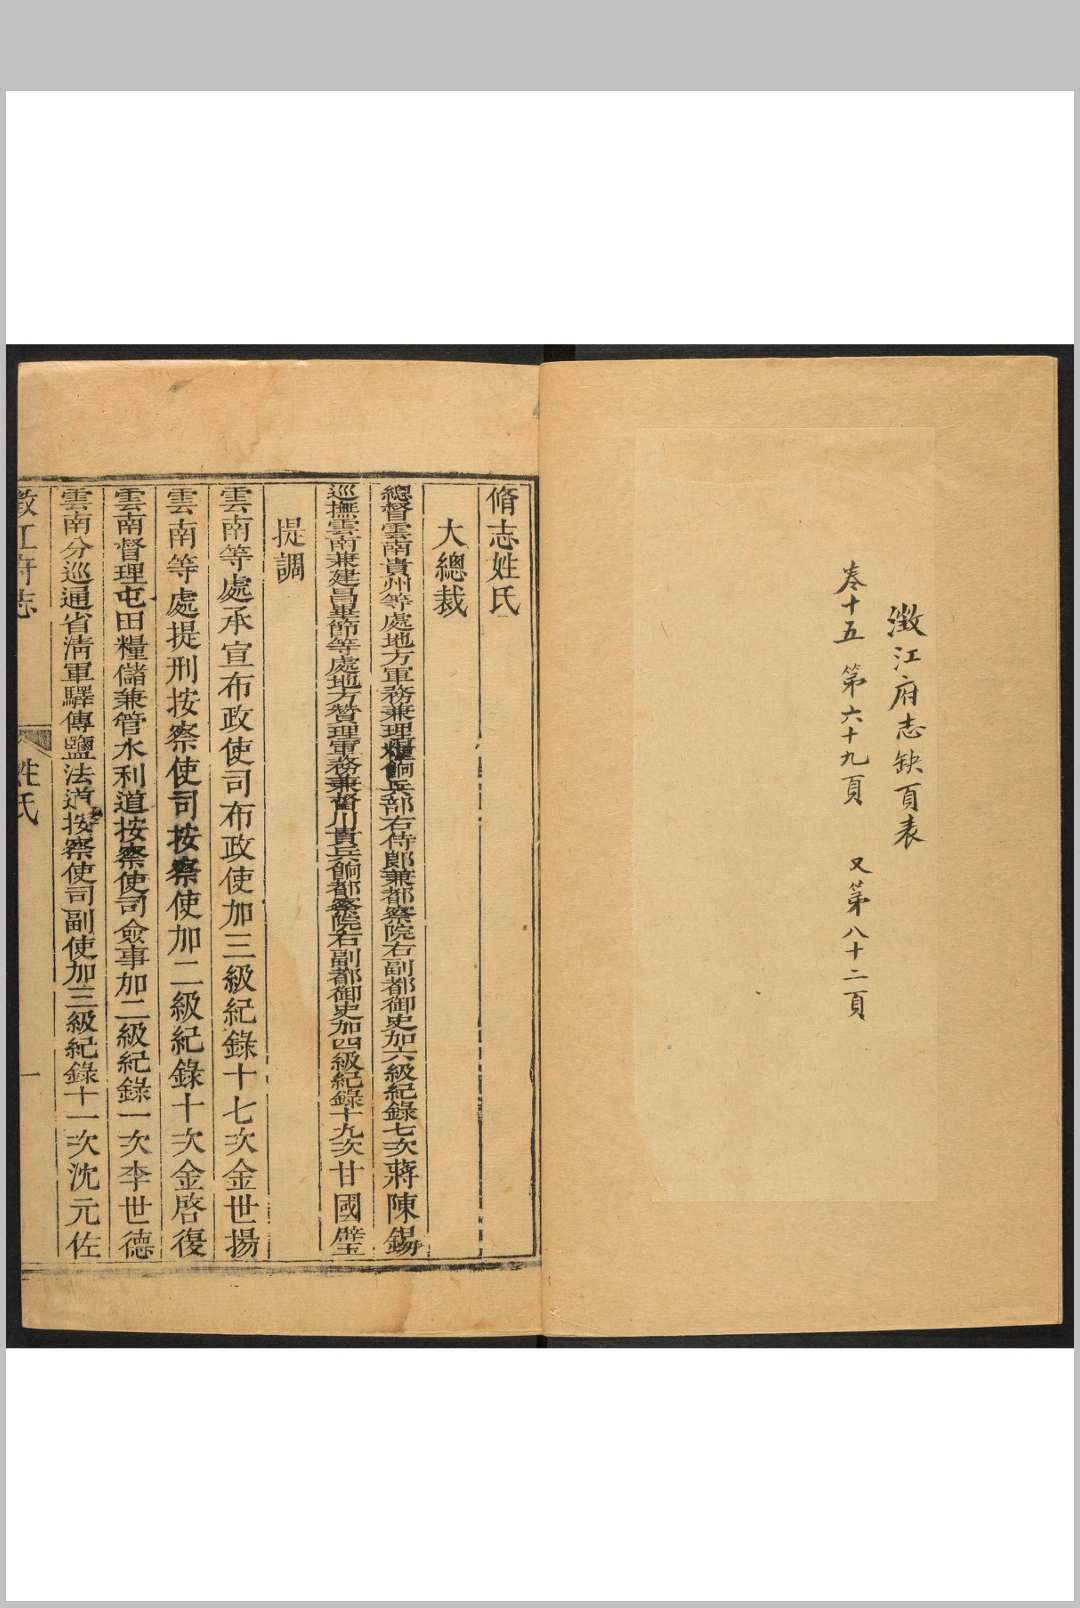 澂江府志缺頁表
卷十五 第六十九頁 又第八十二頁
脩志姓氏
大總裁
總督雲南貴州等處地方軍務兼理糧餉兵部右侍郎兼都察院右副都御史加六級紀錄七次蔣陳錫
巡撫雲南兼建昌畢節等處地方贊理軍務兼督川貴兵餉都察院右副都御史加四級紀錄十九次甘國璧
提調
雲南等處承宣布政使司布政使加三級紀錄十七次金世揚
雲南等處提刑按察使司按察使加二級紀錄十次金啓復
雲南督理屯田糧儲兼管水利道按察使司僉事加二級紀錄一次李世德
雲南分巡通省清軍驛傳鹽法道按察使司副使加三級紀錄十一次沈元佐
澂江府志 姓氏 一